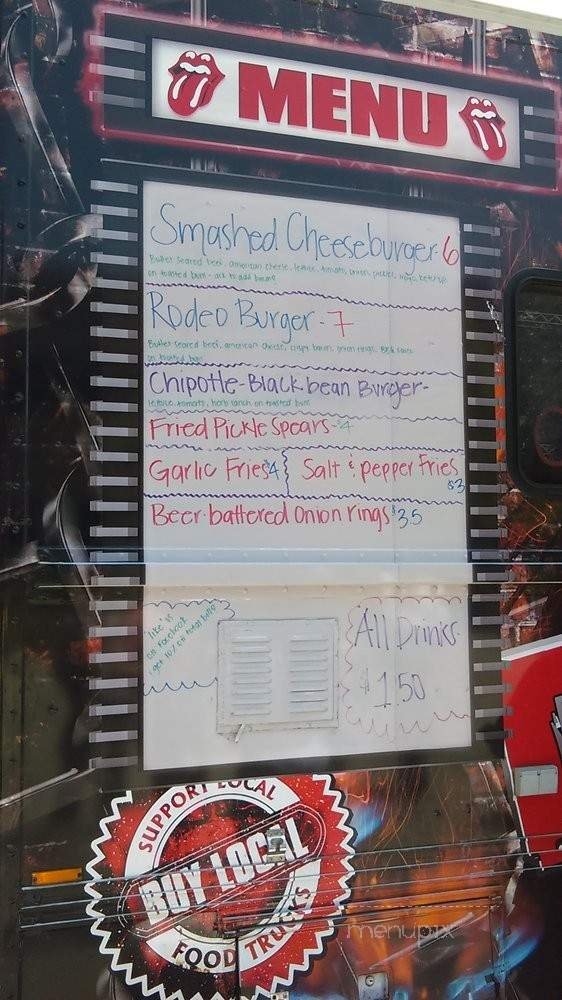 MENU
Smashed Cheeseburger. 6
Butter Seared beef, american cheese, lettuce, tomato, onion, pickles, mayo, ketchup
on toasted bun - ask to add bacon
Rodeo Burger - 7
Butter Seared beef, american cheese, crispy bacon, onion rings, BBQ sauce
on toasted bun
Chipotle-Black bean Burger-
lettuce, tomato, herb ranch on toasted bun
Fried Pickle Spears - $4
Garlic Fries $4
Salt & pepper Fries
$3
Beer-battered Onion rings $3.5
like us
on Facebook
get 10% off total
All Drinks.
$1.50
SUPPORT LOCAL
BUY LOCAL
FOOD TRUCKS
menupix